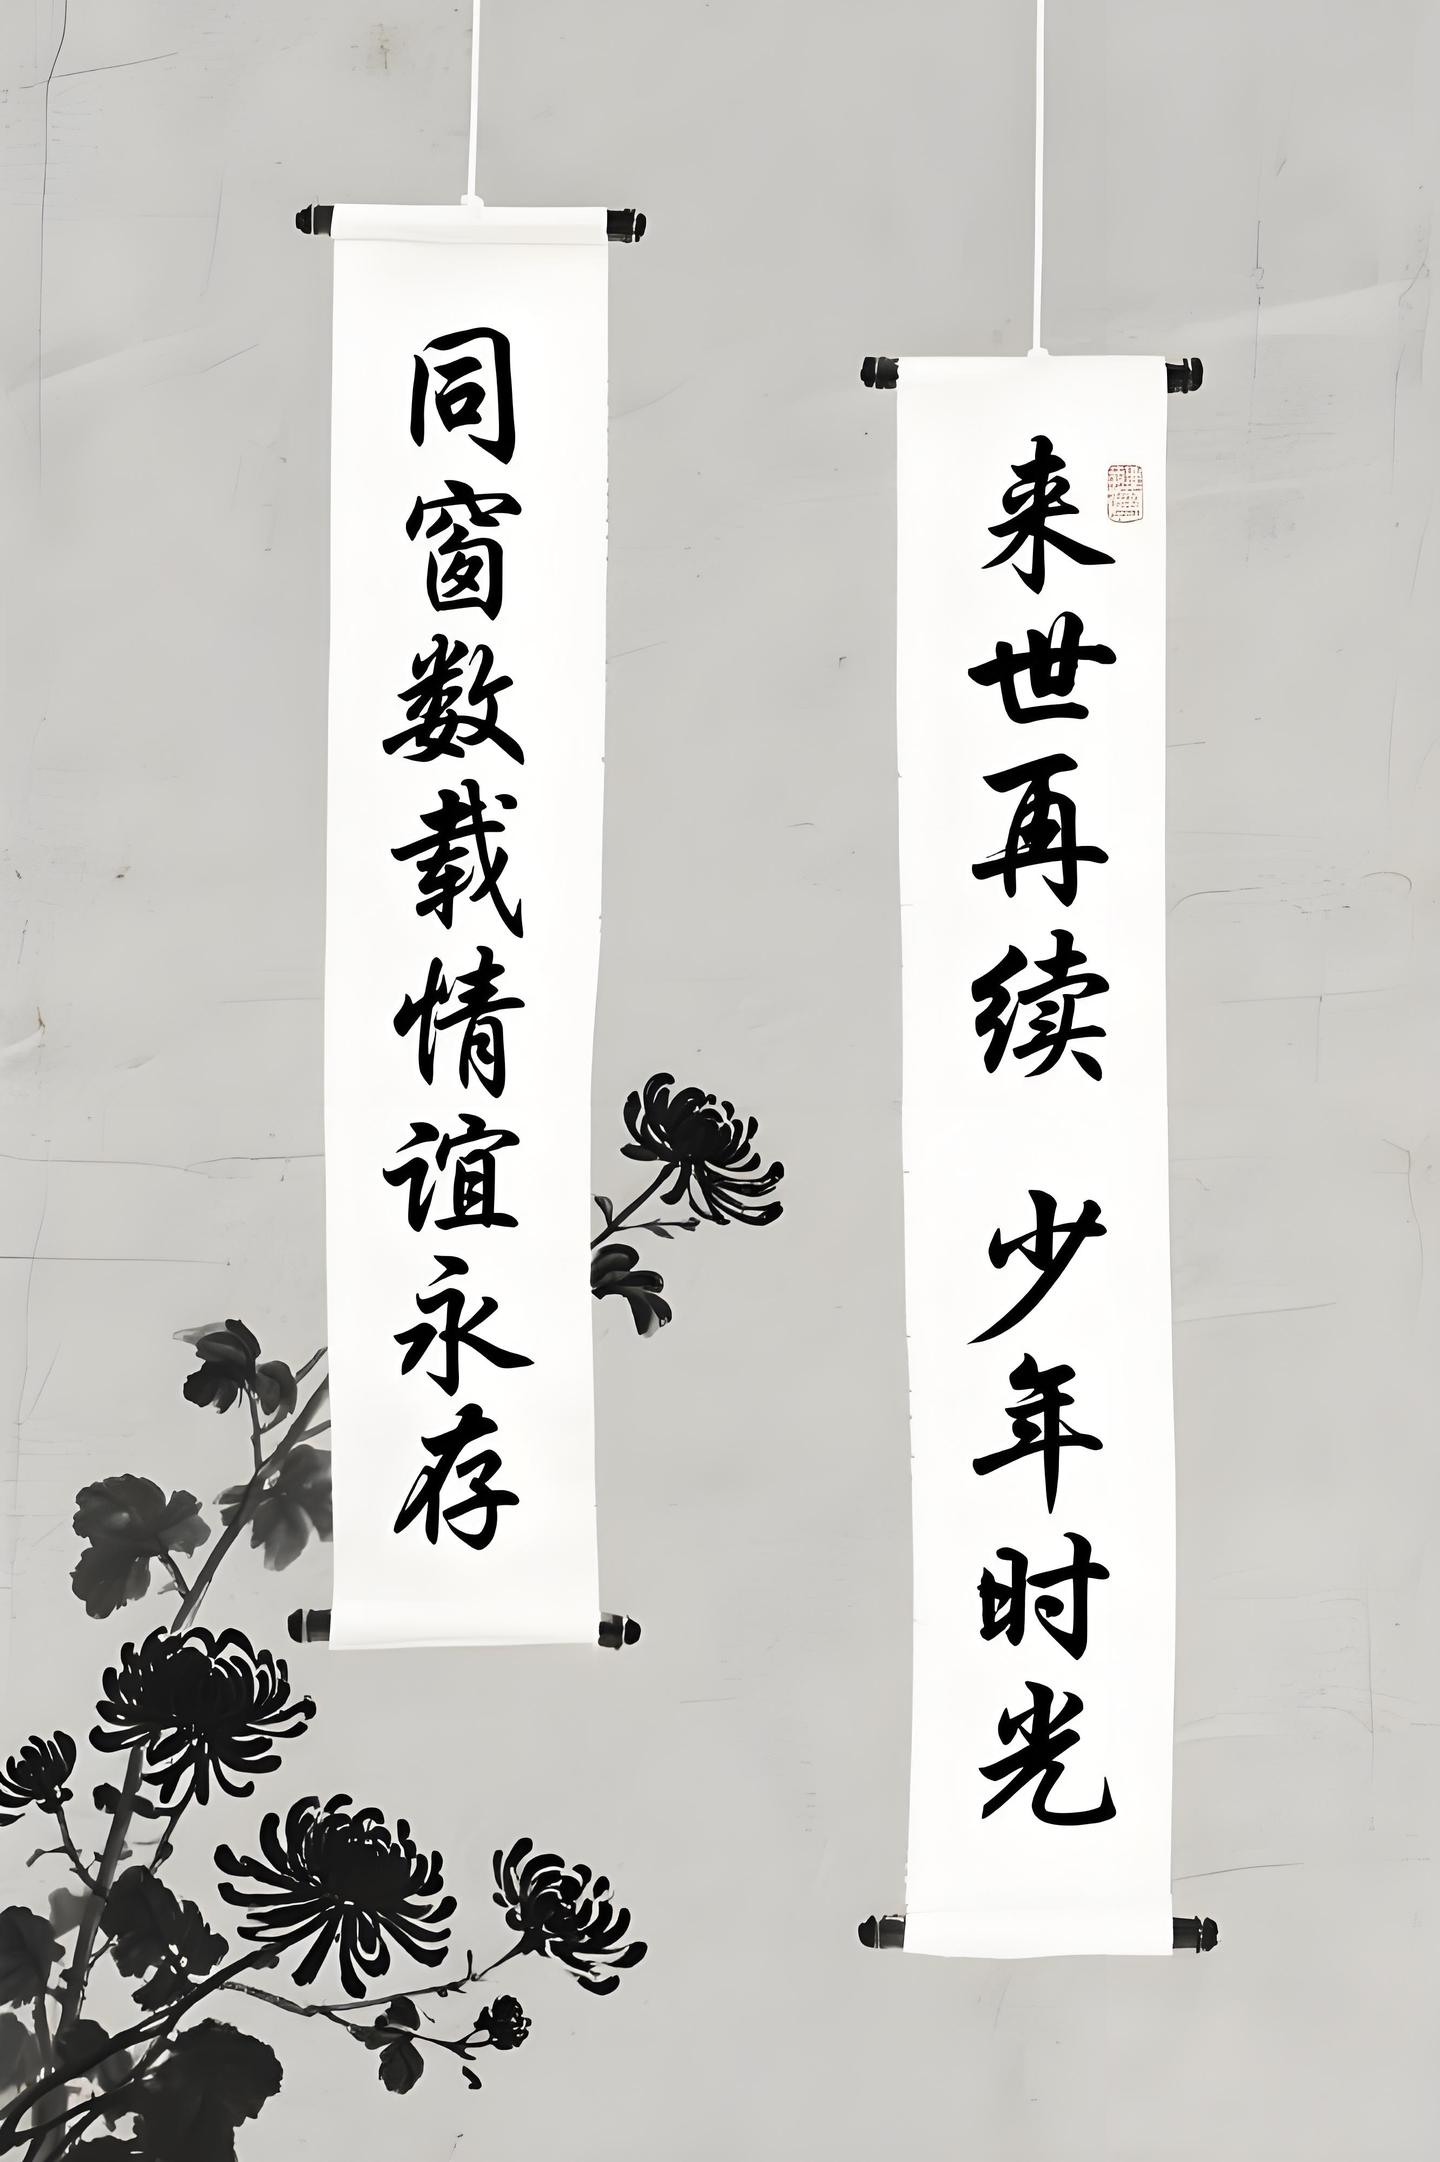 同窗数载情谊永存
来世再续 少年时光